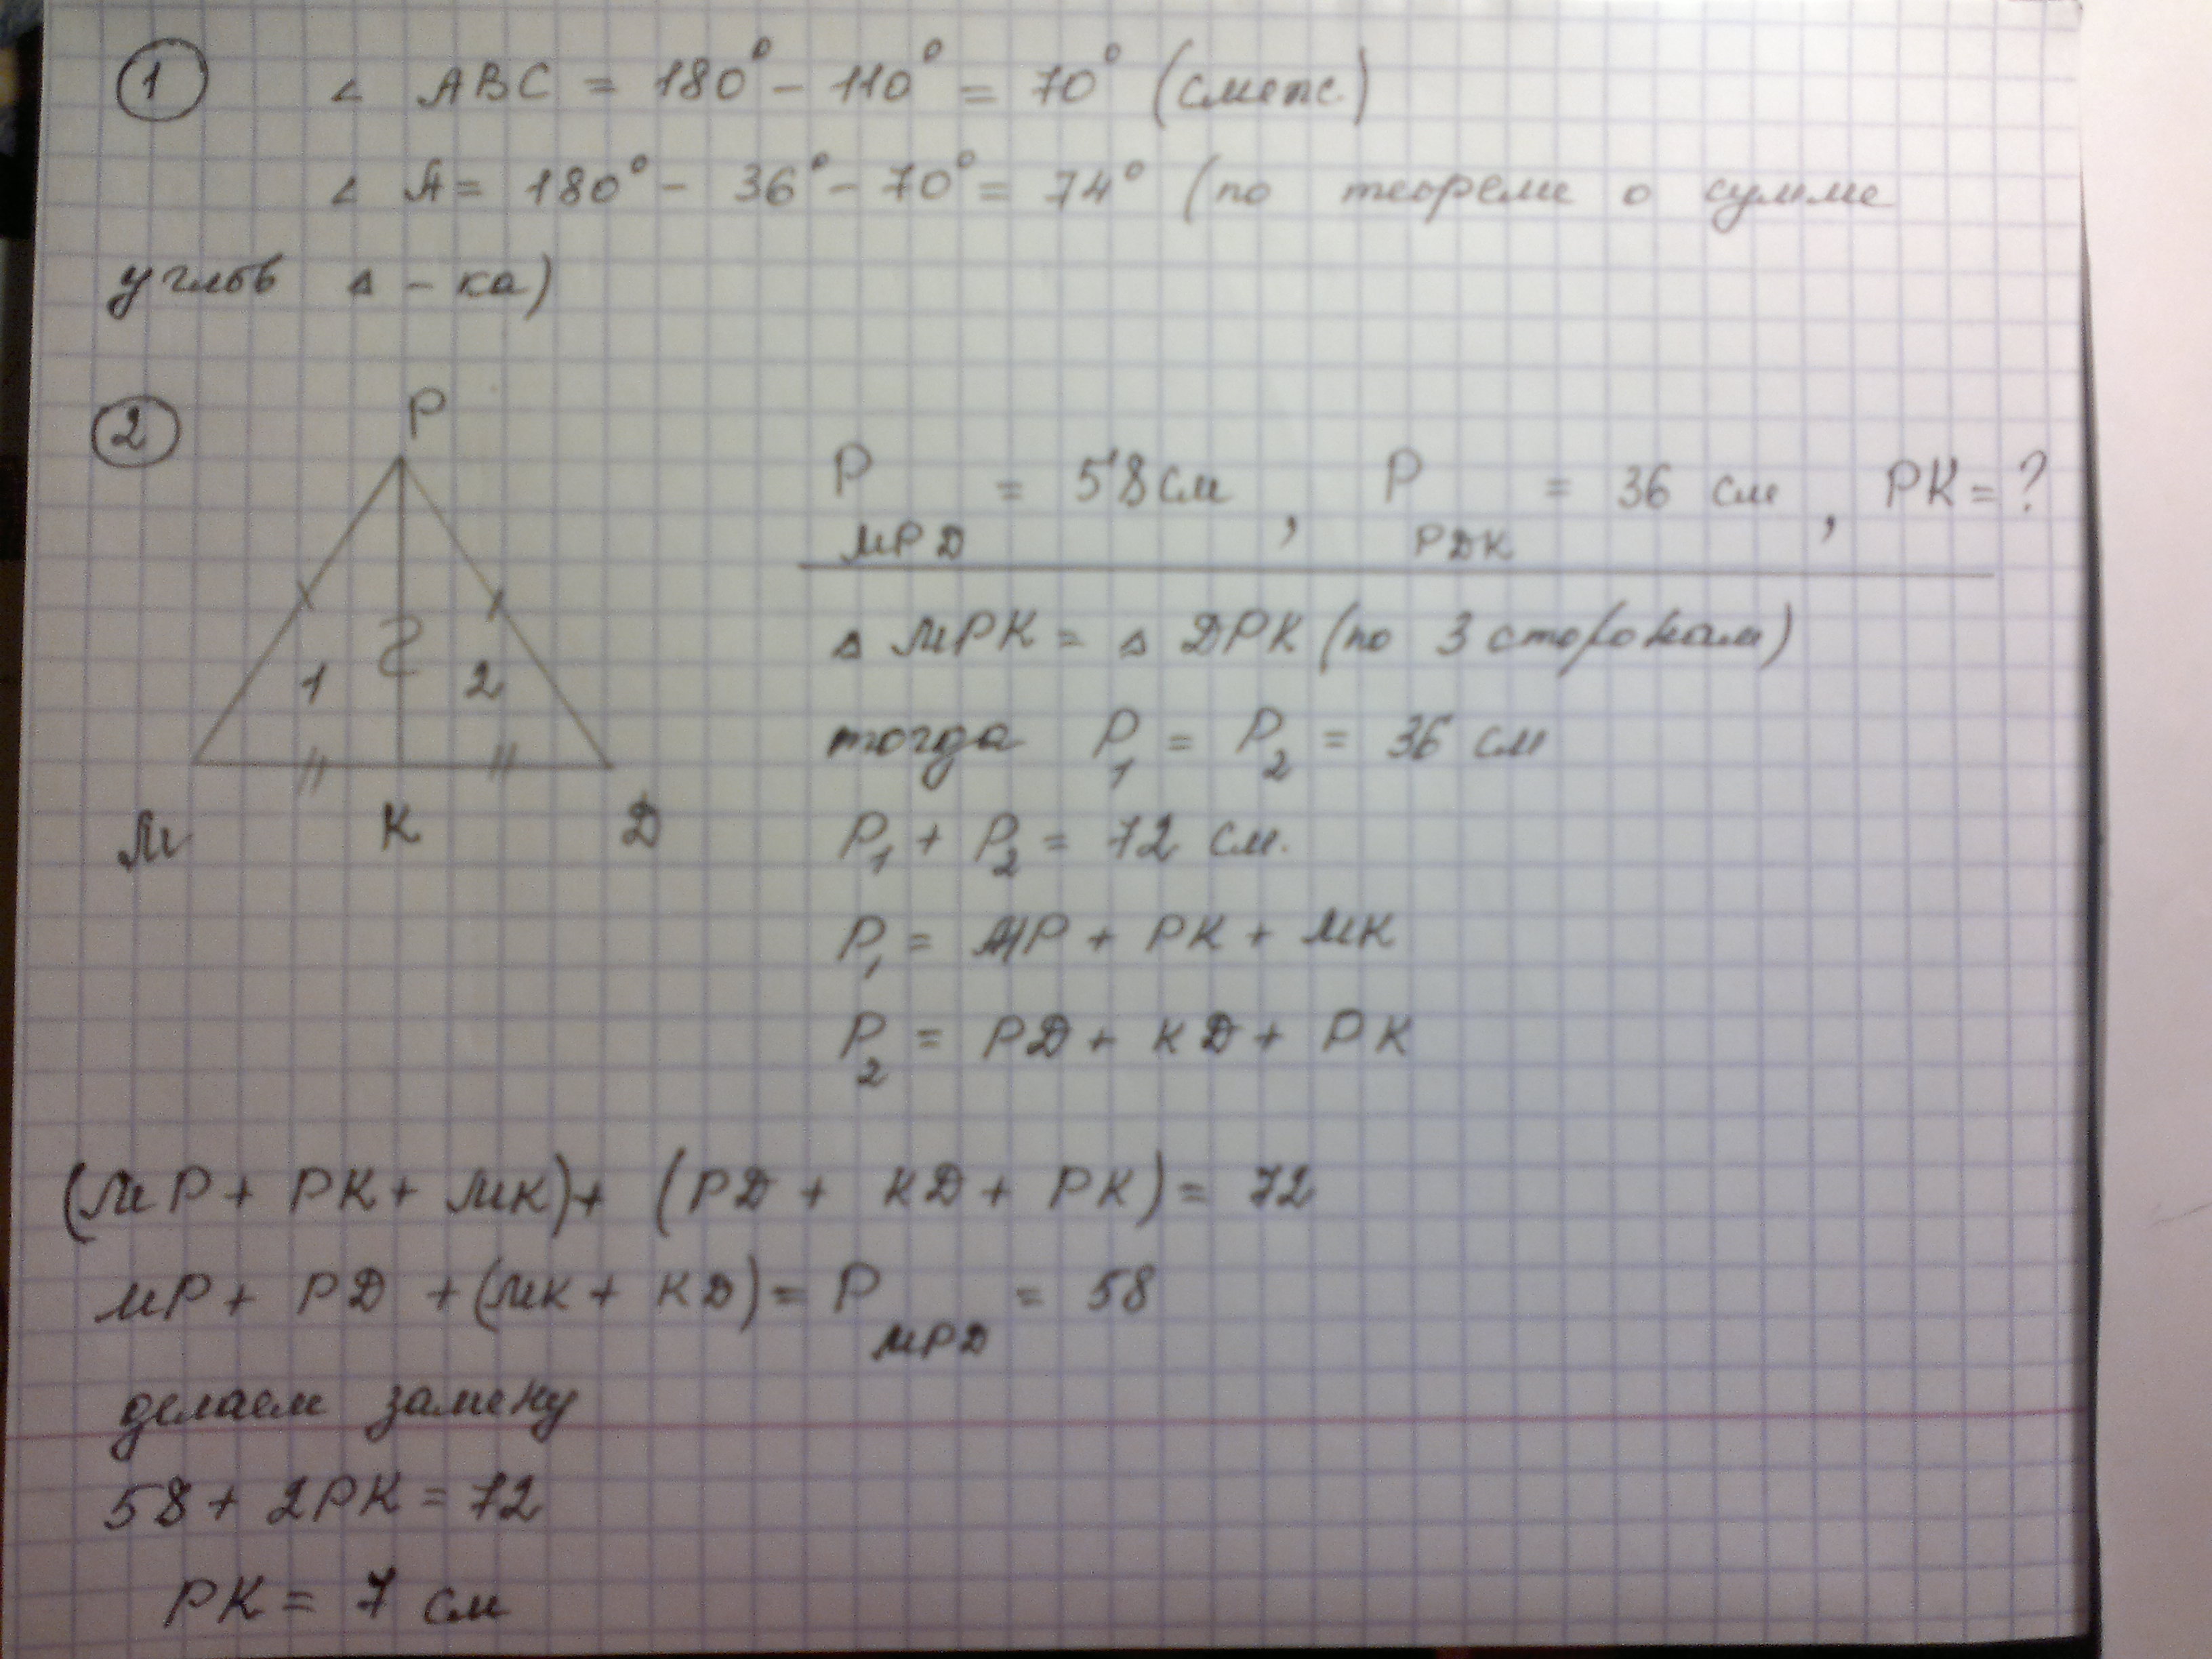 1 ∠ ABC = 180° - 110° = 70° (смеж.)
∠ A = 180° - 36° - 70° = 74° (по теореме о сумме
углов Δ - ка)
2
P
1 ? 2
M K D
P MPD = 58 см , P PDK = 36 см , PK = ?
Δ MPK = Δ DPK (по 3 сторонам)
тогда P1 = P2 = 36 см
P1 + P2 = 72 см.
P1 = MP + PK + MK
P2 = PD + KD + PK
(MP + PK + MK) + (PD + KD + PK) = 72
MP + PD + (MK + KD) = P MPD = 58
делаем замену
58 + 2PK = 72
PK = 7 см